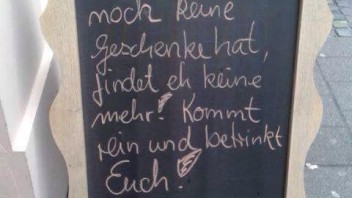 noch keine
Geschenke hat,
findet eh keine
mehr! Kommt
rein und betrinkt
Euch!